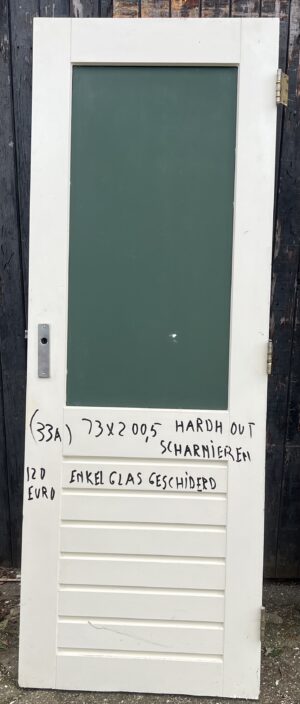 (33A) 73X200,5 HARDHOUT
SCHARNIEREN
120 ENKEL GLAS GESCHIDERD
EURO